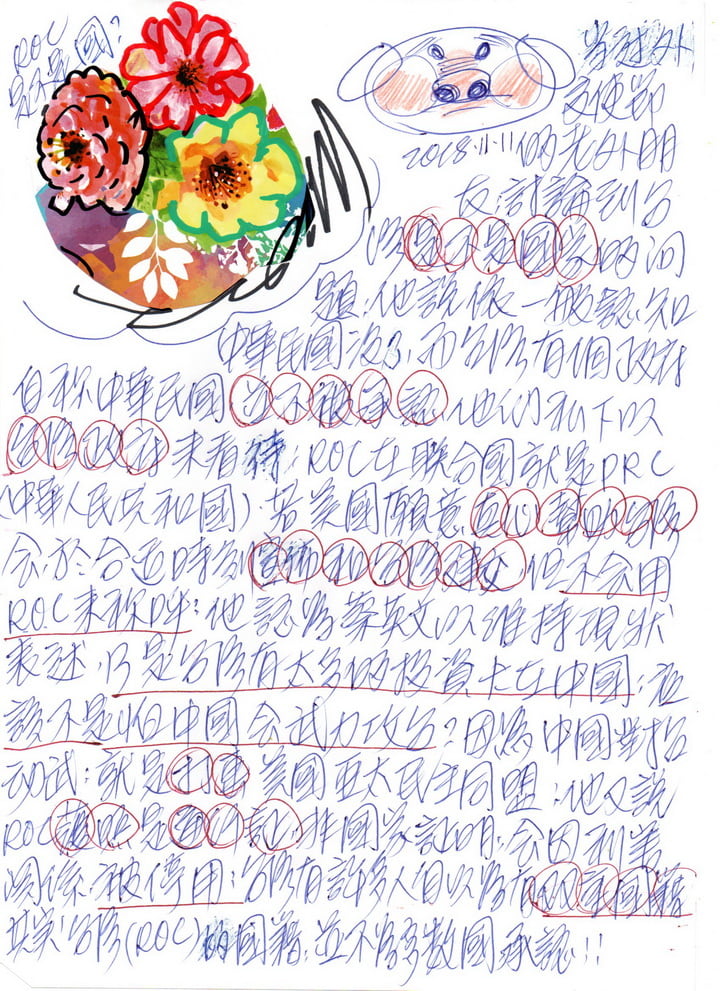 ROC
是不是國?
當過外
交使節
2018.11.11的老外朋
友:討論到台
灣是不是國家的问
題:他說像一般認知
中華民國沒了,而台灣有個政府
自称中華民國並不被承認,他们私下以
台灣政府來看待;ROC在联合國就是PRC
(中華人民共和國).若美國願意在以台灣
会於合适時刻宣布和台灣建交但不会用
ROC来称呼;他認為蔡英文以維持現狀
表述,乃是台灣有太多的投資卡在中國:应
該不是怕中國会武力攻台?因為中國對台
动武:就是打美國亞太民主同盟:他又說
ROC護照是証,非國家証明,会因利業
関係.被停用:台灣有許多人自以為有两國籍
其实台灣(ROC)的國籍:並不為多数國承認!!